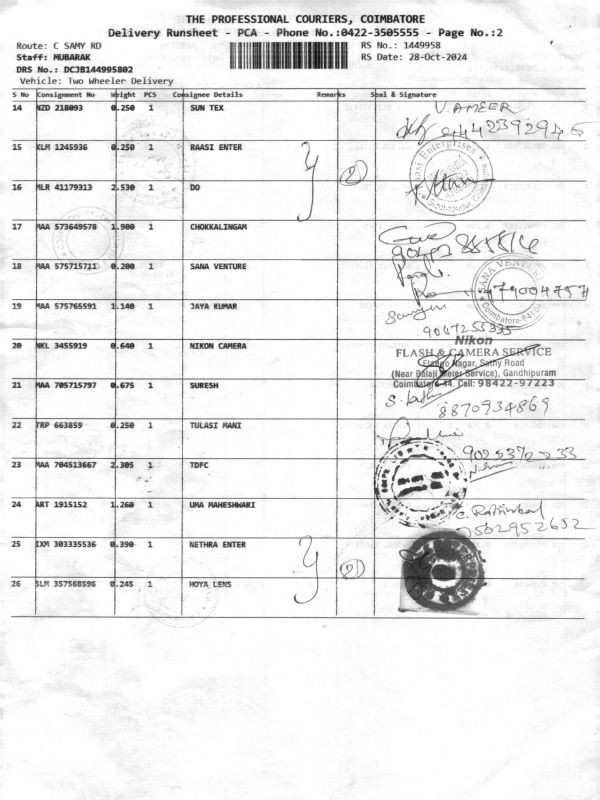 THE PROFESSIONAL COURIERS, COIMBATORE
Delivery Runsheet - PCA - Phone No.:0422-3505555 - Page No.:2
Route: C SAMY RD
RS No.: 1449958
Staff: MUBARAK
RS Date: 28-Oct-2024
DRS No.: DCJB144995802
Vehicle: Two Wheeler Delivery
S No Consignment No Weight PCS Consignee Details Remarks Seal & Signature
14 NZD 218093 0.250 1 SUN TEX
V. AMEER
15 KLM 1245936 0.250 1 RAASI ENTER
16 MLR 41179313 2.530 1 DO
17 MAA 573649578 1.900 1 CHOKKALINGAM
18 MAA 575715711 0.200 1 SANA VENTURE
19 MAA 575765591 1.140 1 JAYA KUMAR
9047255335
20 NKL 3455919 0.640 1 NIKON CAMERA
Nikon
FLASH & CAMERA SERVICE
Elango Nagar, Sathy Road
(Near Balaji Meter Service), Gandhipuram
Coimbatore-44. Cell: 98422-97223
21 MAA 705715797 0.675 1 SURESH
8870934869
22 TRP 663859 0.250 1 TULASI MANI
23 MAA 704513667 2.305 1 TDFC
24 ART 1915152 1.260 1 UMA MAHESHWARI
7502952652
25 IXM 303335536 0.390 1 NETHRA ENTER
26 SLM 357568596 0.245 1 HOYA LENS